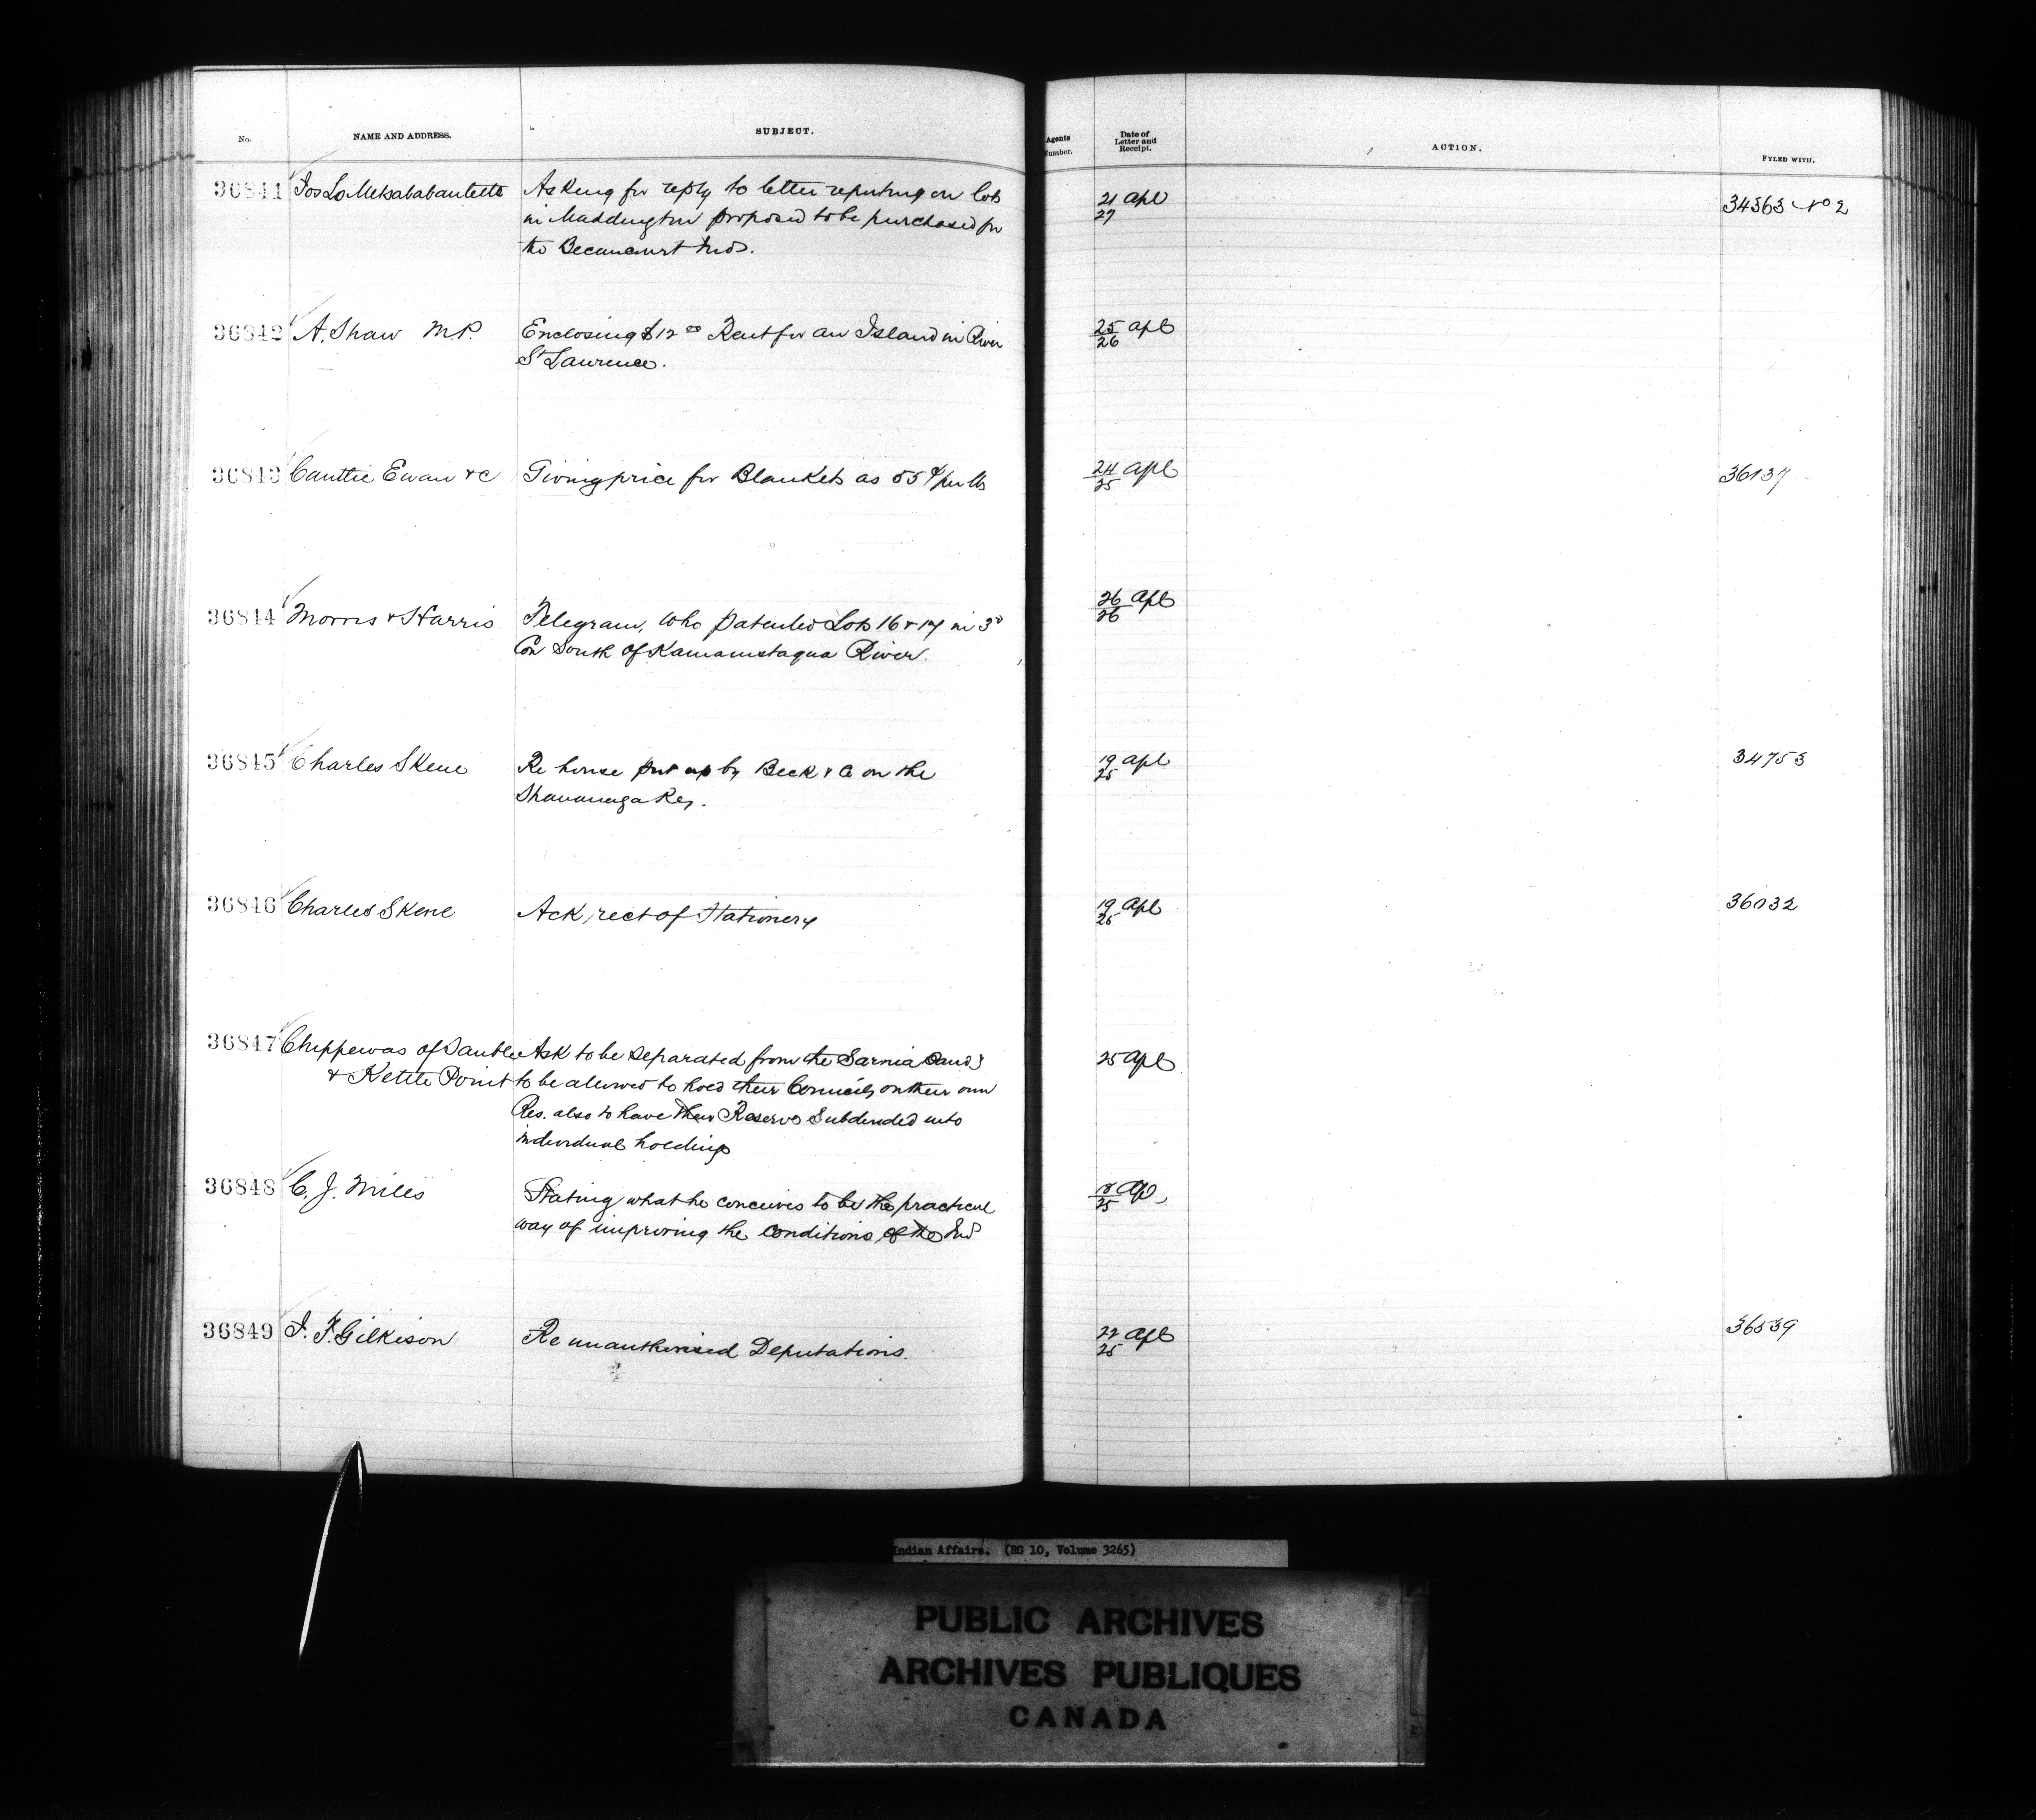 No. NAME AND ADDRESS. SUBJECT. Agents Number. Date of Letter and Receipt. ACTION. FYLED WITH.
36841 Jos Ls Metsalabautette Asking for reply to letter reporting on lots 21 Apl 34363 No 2
in Maddington proposed to be purchased for 27
the Becancourt Inds.
36842 A. Shaw M.P. Enclosing $12 00 Rent for an Island in River 25 Apl
St Lawrence. 26
36843 Canttie Ewan & C Giving price for Blankets as 55 ¢/ per lb 24 Apl 36137
25
36844 Morris & Harris Telegram, who patented Lots 16 & 17 in 3d 26 Apl
Con South of Kamanistaqua River. 26
36845 Charles Skene Re house put up by Beck & Co on the 19 Apl 34753
Shawanaga Res. 25
36846 Charles Skene Ack, rect of Stationery 19 Apl 36032
25
36847 Chippewas of Sauble Ask to be separated from the Sarnia Band & 25 Apl
& Kettle Point to be allowed to hold their Councils on their own
Res. also to have their Reserve Subdivided into
individual holdings
36848 C. J. Miles Stating what he conceives to be the practical 8 Ap,
way of improving the conditions of the Ind 25
36849 J. T. Gilkison Re unauthorised Deputations. 22 Apl 36539
25
Indian Affairs. (RG 10, Volume 3265)
PUBLIC ARCHIVES
ARCHIVES PUBLIQUES
CANADA